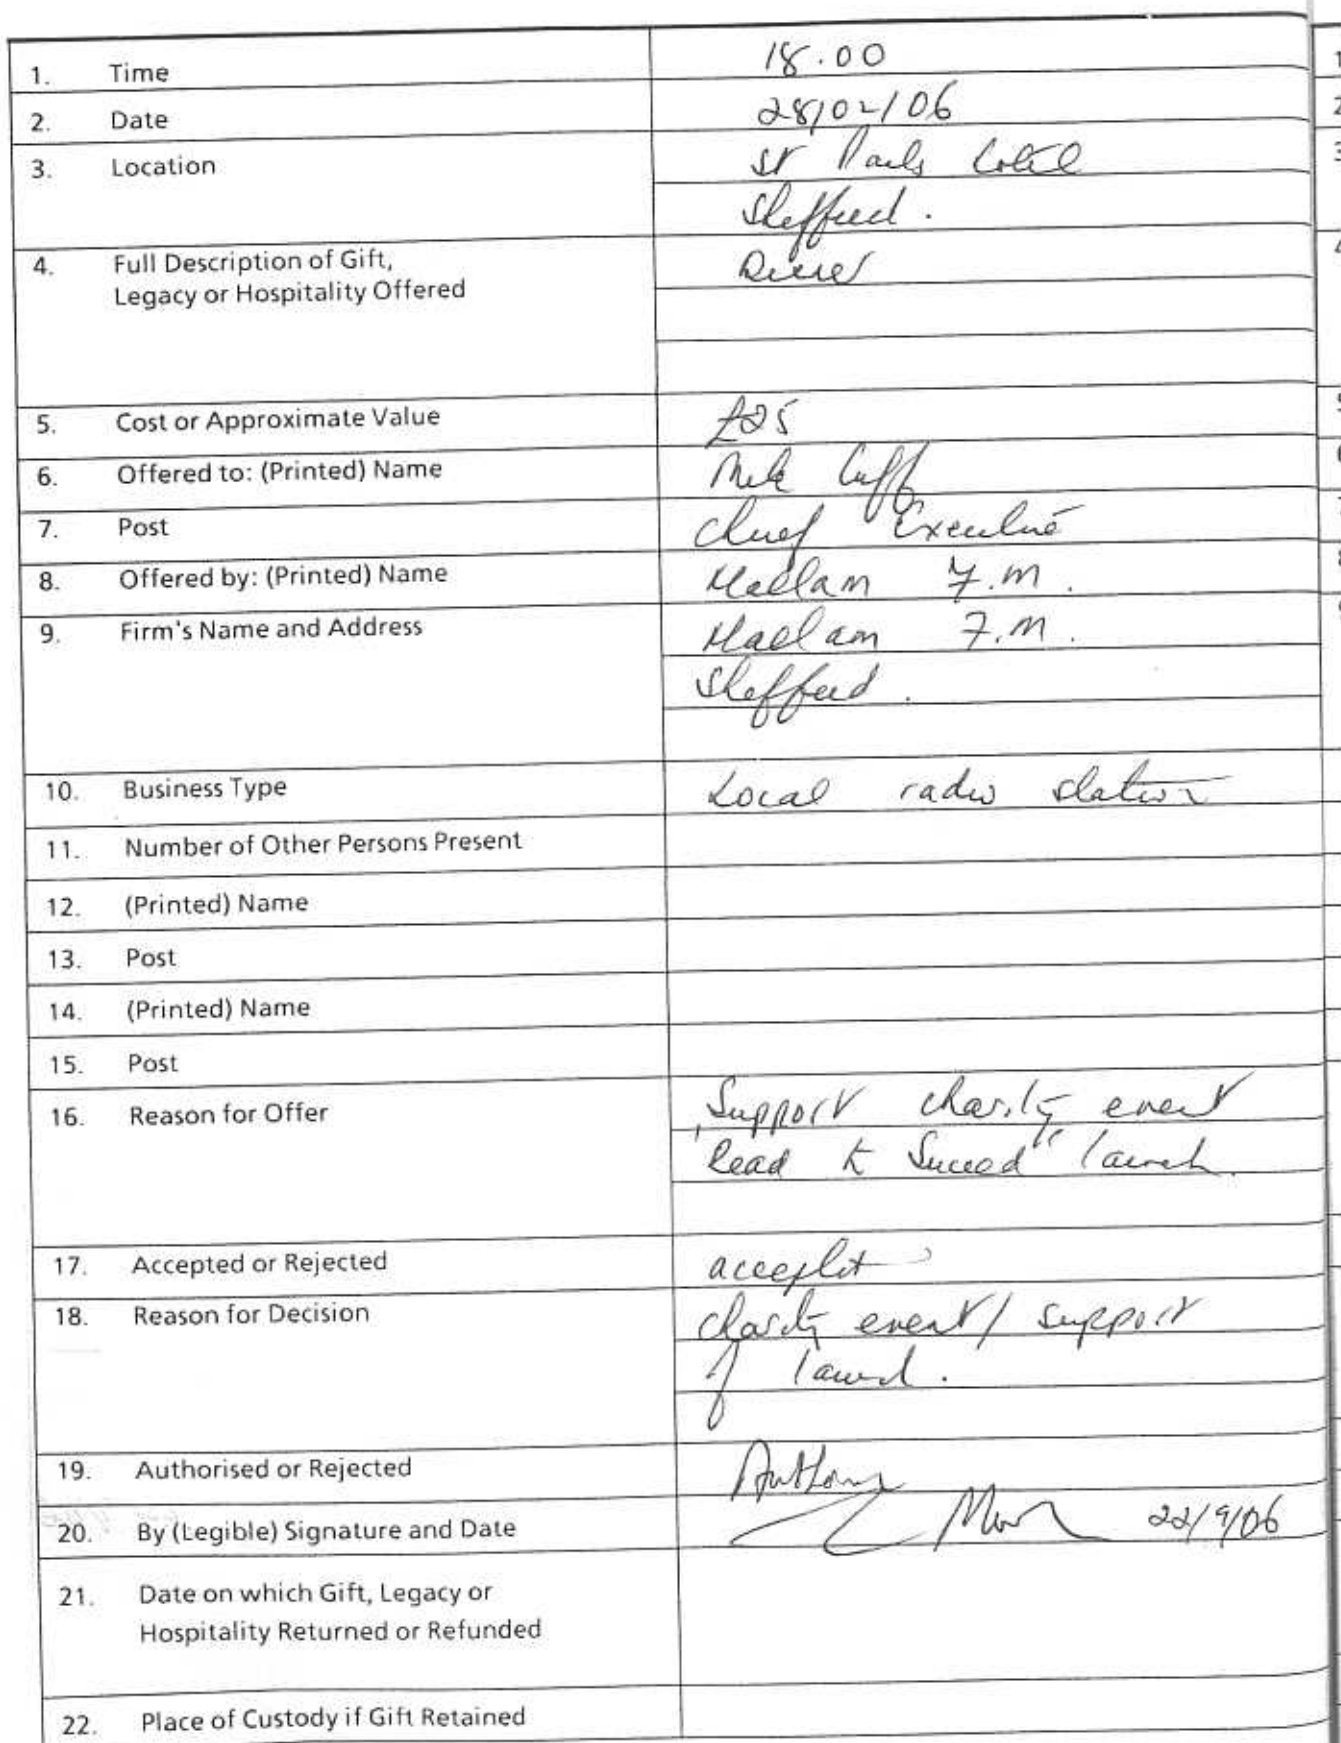 1. Time 18.00
2. Date 28/02/06
3. Location St Pauls Hotel
Sheffield.
4. Full Description of Gift, Dinner
Legacy or Hospitality Offered
5. Cost or Approximate Value £25
6. Offered to: (Printed) Name Mike Cuff
7. Post Chief Executive
8. Offered by: (Printed) Name Hallam F.M.
9. Firm's Name and Address Hallam F.M.
Sheffield.
10. Business Type Local radio station
11. Number of Other Persons Present
12. (Printed) Name
13. Post
14. (Printed) Name
15. Post
16. Reason for Offer Support charity event
"Read to Succeed" launch.
17. Accepted or Rejected accepted
18. Reason for Decision charity event / support
of launch.
19. Authorised or Rejected
20. By (Legible) Signature and Date 22/9/06
21. Date on which Gift, Legacy or
Hospitality Returned or Refunded
22. Place of Custody if Gift Retained